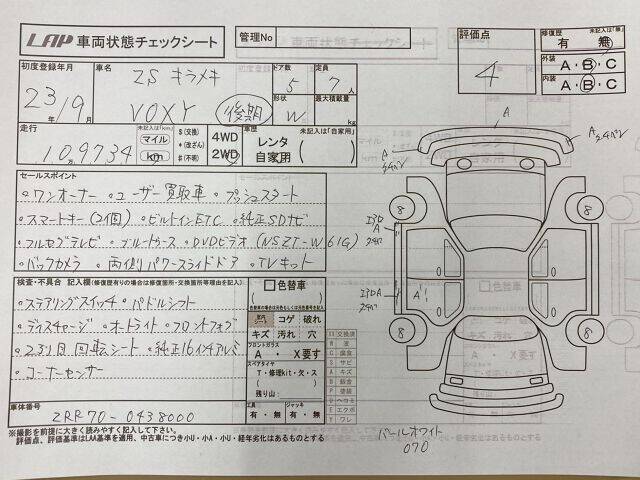 LAP 車両状態チェックシート
管理No
評価点 4
修復歴 未記入は「無」
有 無
外装 A・B・C
内装 A・B・C
初度登録年月 23年/9月
車名 ZS キラメキ
VOXY 後期
ドア数 5
定員 7人
形状 W
最大積載量 kg
走行 未記入は「km」
109734
マイル
km
$(交換)
*(改ざん)
#(不明)
4WD
2WD
車歴 未記入は「自家用」
レンタ
自家用
セールスポイント
・ワンオーナー ・ユーザー買取車 ・プッシュスタート
・スマートキー(2個) ・ビルトインETC ・純正SDナビ
・フルセグテレビ ・ブルートゥース ・DVDビデオ(NSZT-W61G)
・バックカメラ ・両側パワースライドドア ・TVキット
検査・不具合 記入欄(修復歴有りの場合は修復箇所・交換箇所等理由を記入)
・ステアリングスイッチ ・パドルシフト
・ディスチャージ ・オートライト ・フロントフォグ
・2列目回転シート ・純正16インチアルミ
・コーナーセンサー
色替車
コゲ 破れ
キズ 汚れ 穴
フロントガラス
A ・ X要す
スペアタイヤ
T・修理kit・欠・ス
残り山
工具 有・無
ジャッキ 有・無
XX 交換済
W 波
C 腐食
S サビ
A キズ
B 鈑金
P 塗装
U ヘコミ
E エクボ
Y ワレ
車体番号
ZRR70-0438000
※撮影を前提に大きく読みやすく記入して下さい。
評価点、評価基準はLAA基準を適用、中古車につき小U・小A・小U・経年劣化はあるものとする
A
8
8
8
8
A
A'
色替車
パールホワイト
070